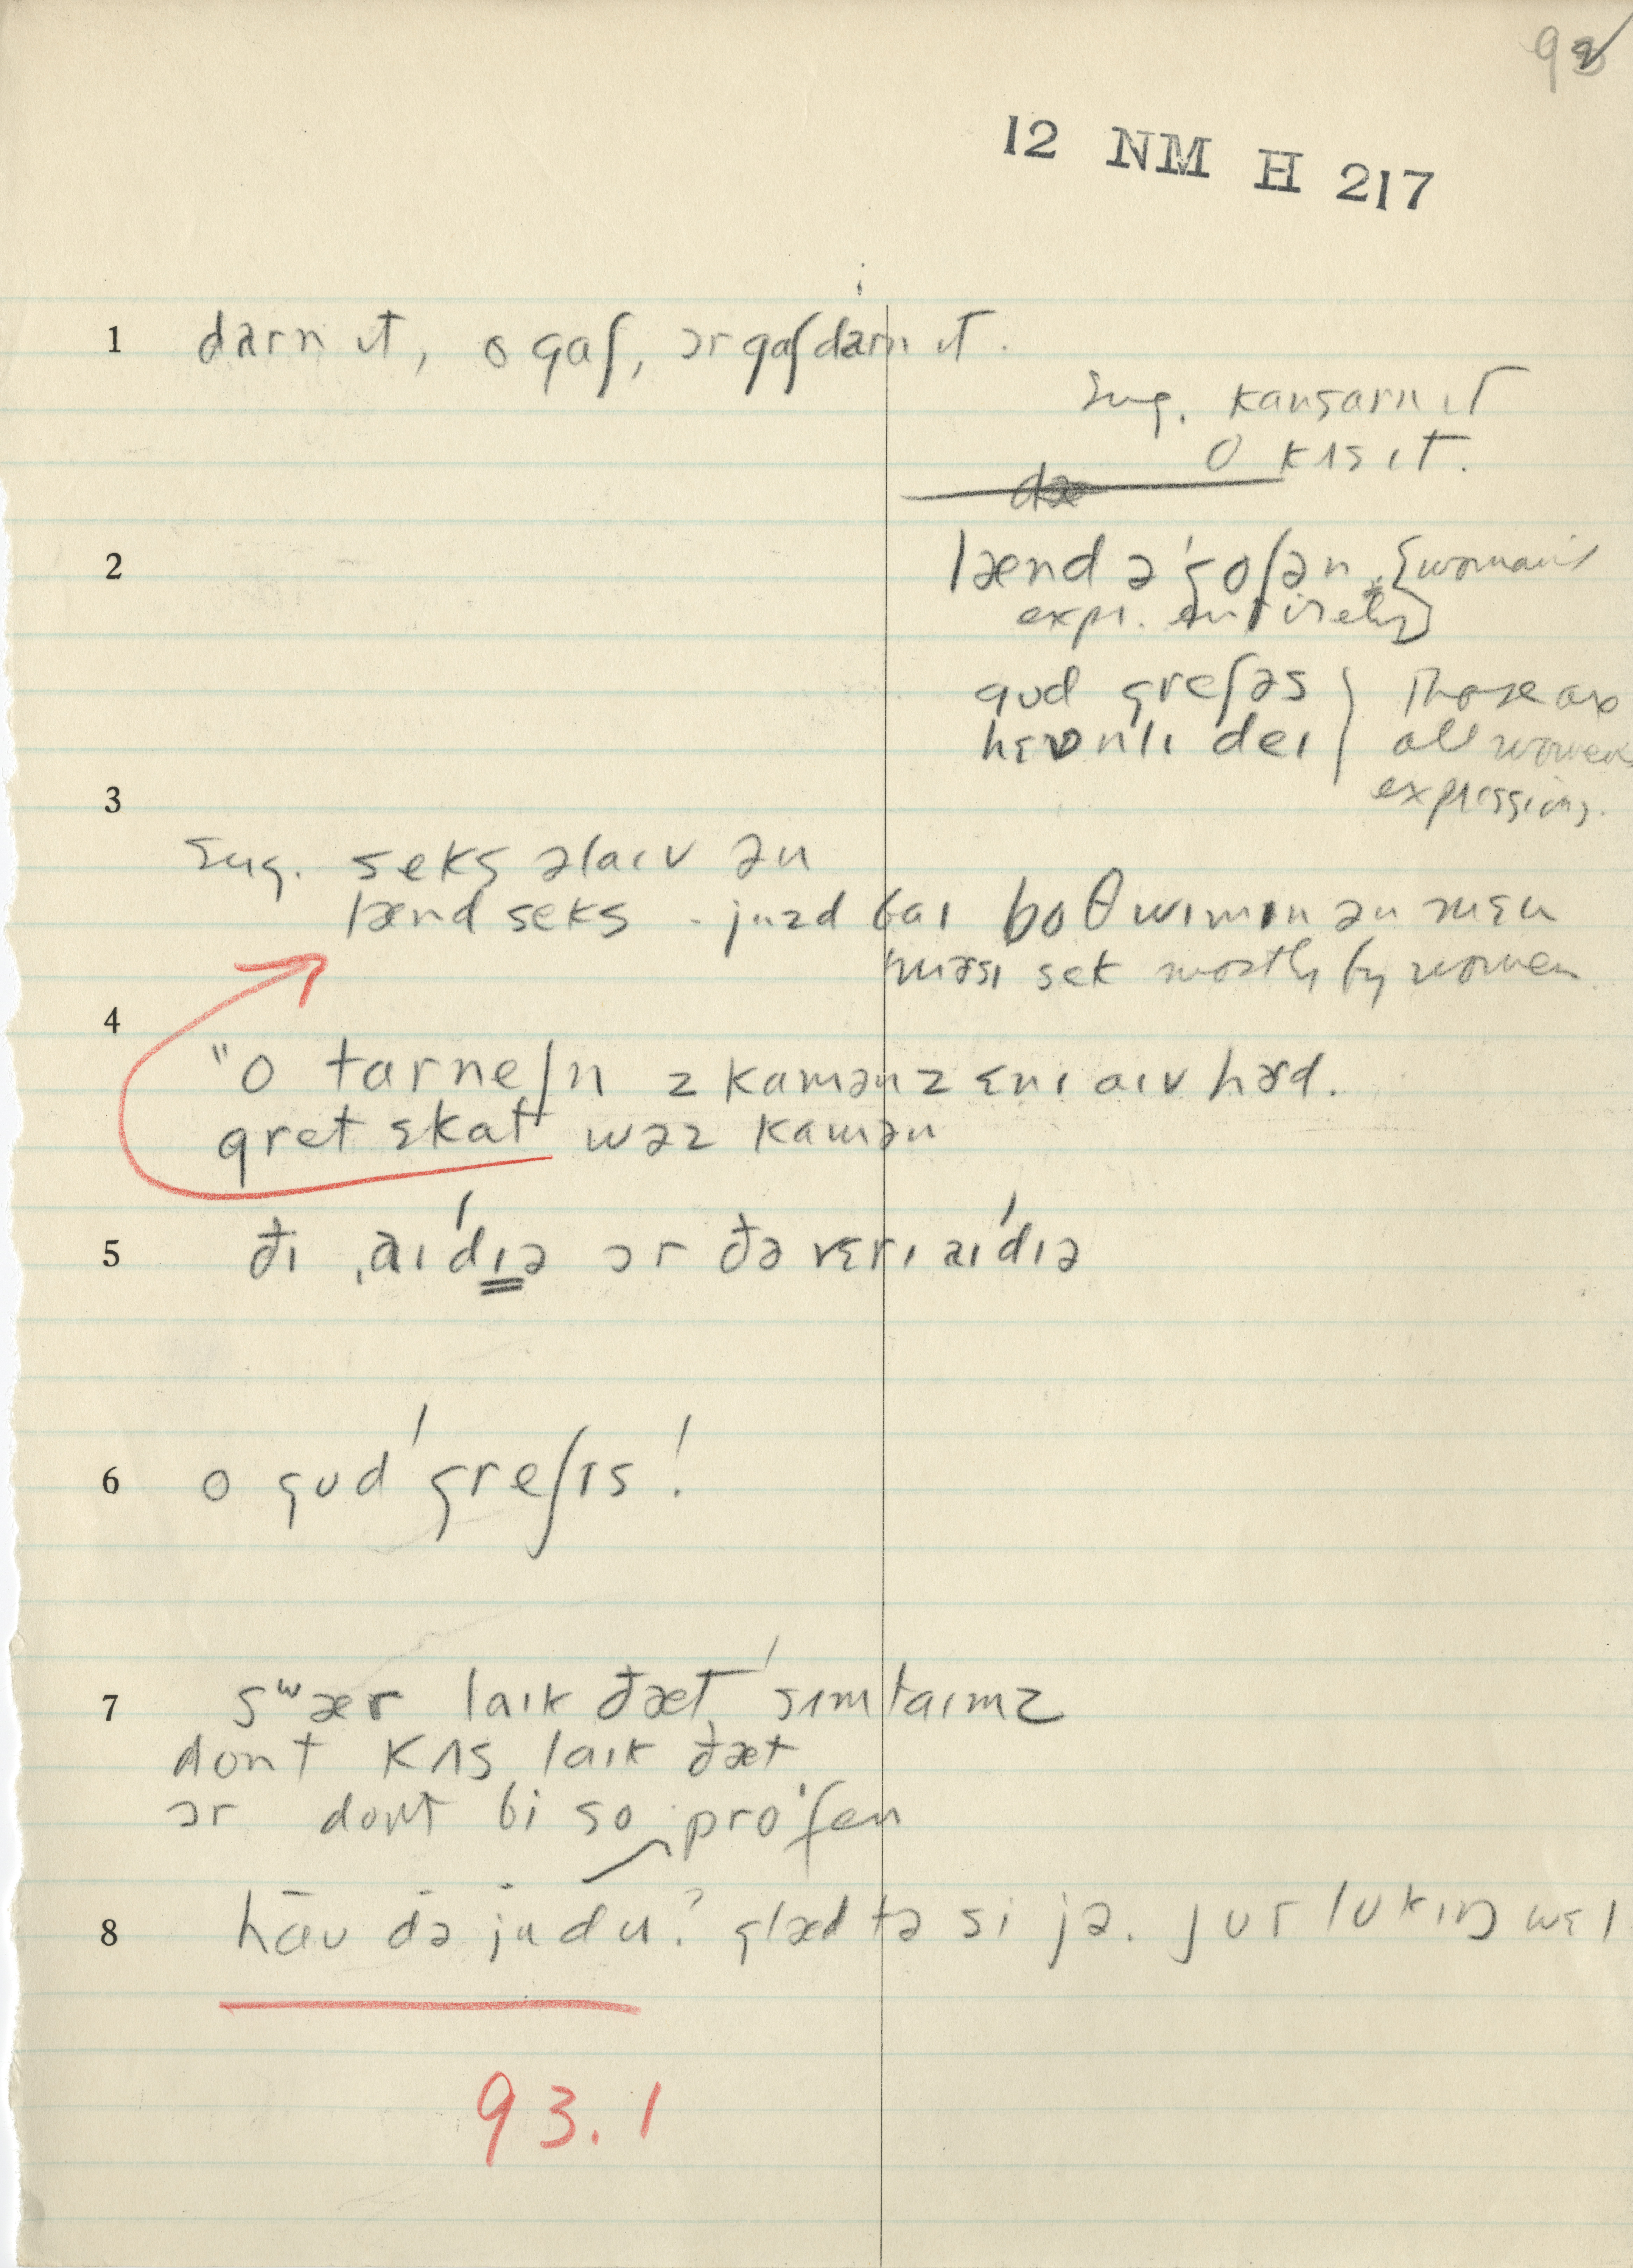 92
12 NM H 217
1 darn ɪt, o gaʃ, ər gaʃ darn ɪt.
sug. kansarn ɪt
o kʌs ɪt.
2 lænd ə'goʃən {woman's
expr. entirely}
gud greʃəs } Those are
hɛvnlɪ deɪ } all women's
expressions.
3
sug. seks əlaɪv ən
lænd seks - juzd baɪ boθ wɪmɪn ən mɛn
mərsɪ sek mostly by women
4
"o tarneʃn z kamənz ɛnɪ aɪv hərd.
gret skat wəz kamən
5 ði ˌaɪ'dɪə ər ðə vɛrɪ aɪ'dɪə
6 o gud 'greʃɪs!
7 sʷær laɪk ðæt 'sɪmtaɪmz
dont kʌs laɪk ðæt
ər dont bi so pro'fen
8 hau də ju du? glæd tə si jə. jur lukɪŋ wɛl
93.1